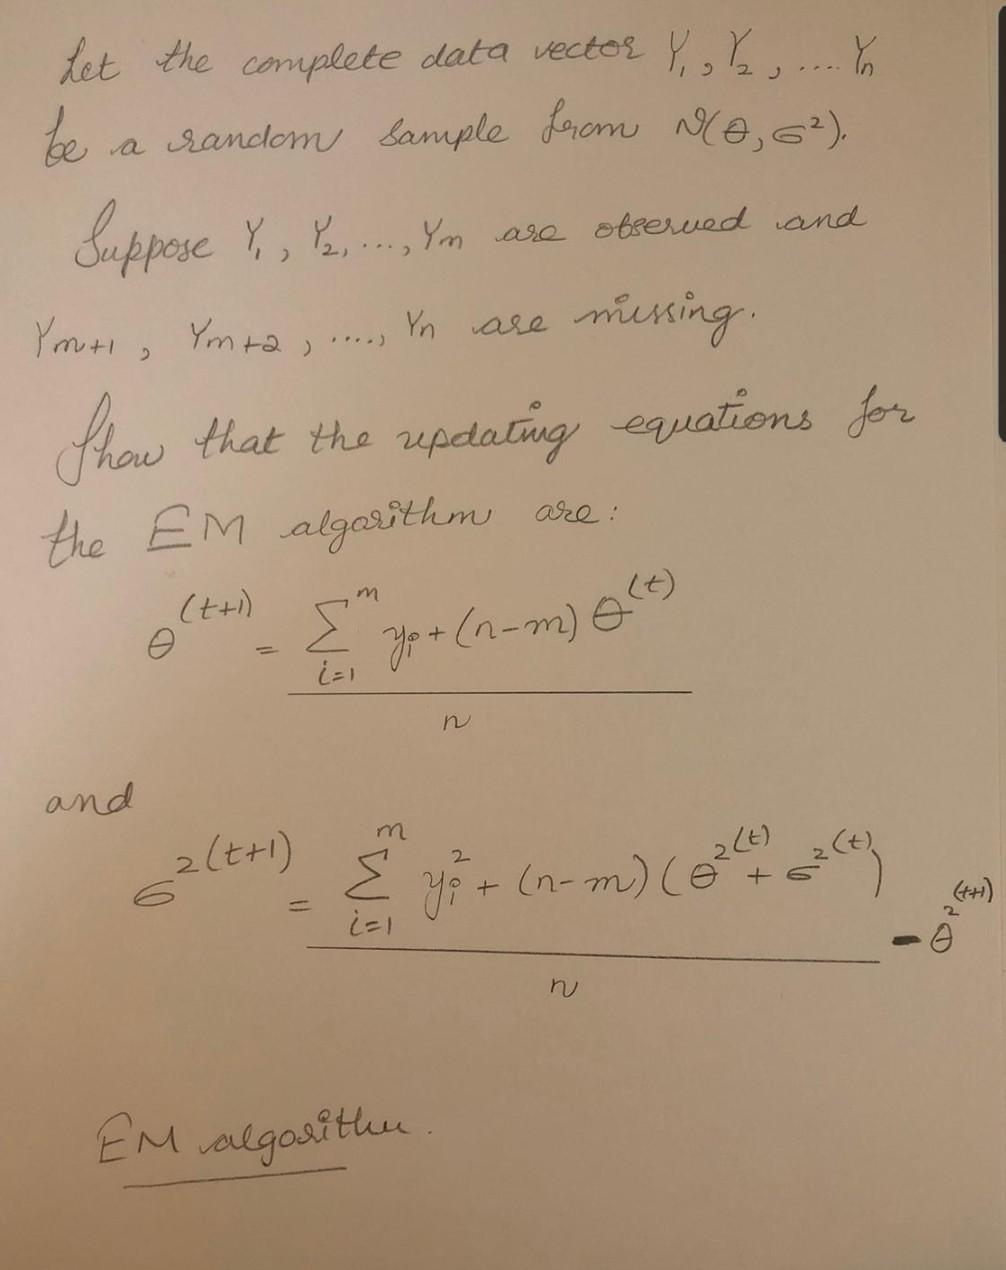 Let the complete data vector Y₁, Y₂, .... Yₙ
be a random sample from N(θ, σ²).
Suppose Y₁, Y₂, ..., Yₘ are observed and
Yₘ₊₁, Yₘ₊₂, ...., Yₙ are missing.
Show that the updating equations for
the EM algorithm are:
θ^(t+1) = (∑_{i=1}^{m} yᵢ + (n-m) θ^(t)) / n
and
σ^2(t+1) = (∑_{i=1}^{m} yᵢ² + (n-m) (θ^2(t) + σ^2(t))) / n - θ^2(t+1)
EM algorithm.